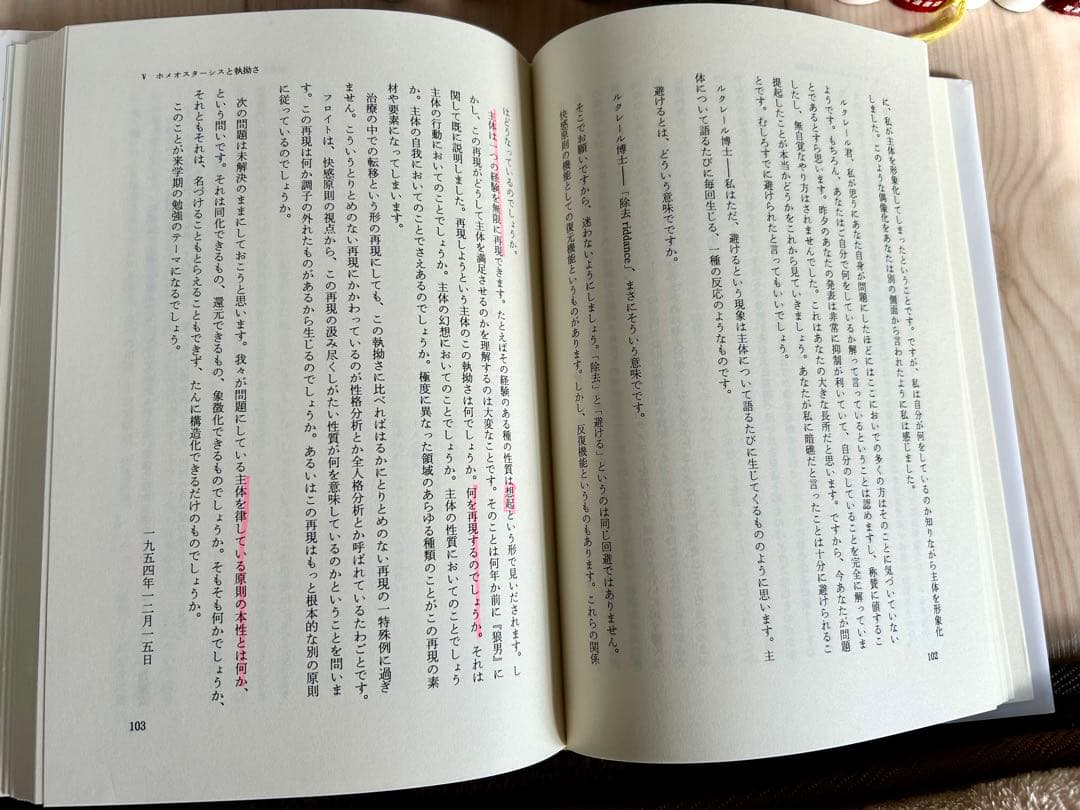 に、私が主体を形象化してしまったということです。ですが、私は自分が何をしているのか知りながら主体を形象化
しました。このような偶像化をあなたは別の側面から言われたように私は感じました。
ルクレール君、私が思うにあなた自身が問題にしたほどにはここにおいでの多くの方はそのことに気づいていない
ようです。もちろん、あなたはご自分で何をしているか解って言っているということは認めますし、称賛に値するこ
とであるとすら思います。昨夕のあなたの発表は非常に抑制が利いていて、自分のしていることを完全に解っていま
したし、無自覚なやり方はされませんでした。これはあなたの大きな長所だと思います。ですから、今あなたが問題
提起したことが本当かどうかをこれから見ていきましょう。あなたが私に暗礁だと言ったことは十分に避けられるこ
とです。むしろすでに避けられたと言ってもいいでしょう。
ルクレール博士――私はただ、避けるという現象は主体について語るたびに生じてくるもののように思います。主
体について語るたびに毎回生じる、一種の反応のようなものです。
避けるとは、どういう意味ですか。
ルクレール博士――「除去 riddance」、まさにそういう意味でです。
そこでお願いですから、迷わないようにしましょう。「除去」と「避ける」というのは同じ回避ではありません。
快感原則の機能としての復元機能というものがあります。しかし、反復機能というものもあります。これらの関係
102
V ホメオスターシスと執拗さ
はどうなっているのでしょうか。
主体は一つの経験を無限に再現できます。たとえばその経験のある種の性質は想起という形で見いだされます。し
かし、この再現がどうして主体を満足させるのかを理解するのは大変なことです。そのことは何年か前に『狼男』に
関して既に説明しました。再現しようという主体のこの執拗さは何でしょうか。何を再現するのでしょうか。それは
主体の行動においてのことでしょうか。主体の幻想においてのことでしょうか。主体の性質においてのことでしょう
か。主体の自我においてのことでさえあるのでしょうか。極度に異なった領域のあらゆる種類のことがこの再現の素
材や要素になってしまいます。
治療の中での転移という形の再現にしても、この執拗さに比べればはるかにとりとめのない再現の一特殊例に過ぎ
ません。こういうとりとめのない再現にかかわっているのが性格分析とか全人格分析とか呼ばれているたわごとです。
フロイトは、快感原則の視点から、この再現の汲み尽くしがたい性質が何を意味しているのかということを問いま
す。この再現は何か調子の外れたものがあるから生じるのでしょうか。あるいはこの再現はもっと根本的な別の原則
に従っているのでしょうか。
次の問題は未解決のままにしておこうと思います。我々が問題にしている主体を律している原則の本性とは何か、
という問いです。それは同化できるもの、還元できるもの、象徴化できるものでしょうか。そもそも何かでしょうか、
それともそれは、名づけることもとらえることもできず、たんに構造化できるだけのものでしょうか。
このことが来学期の勉強のテーマになるでしょう。
一九五四年一二月一五日
103